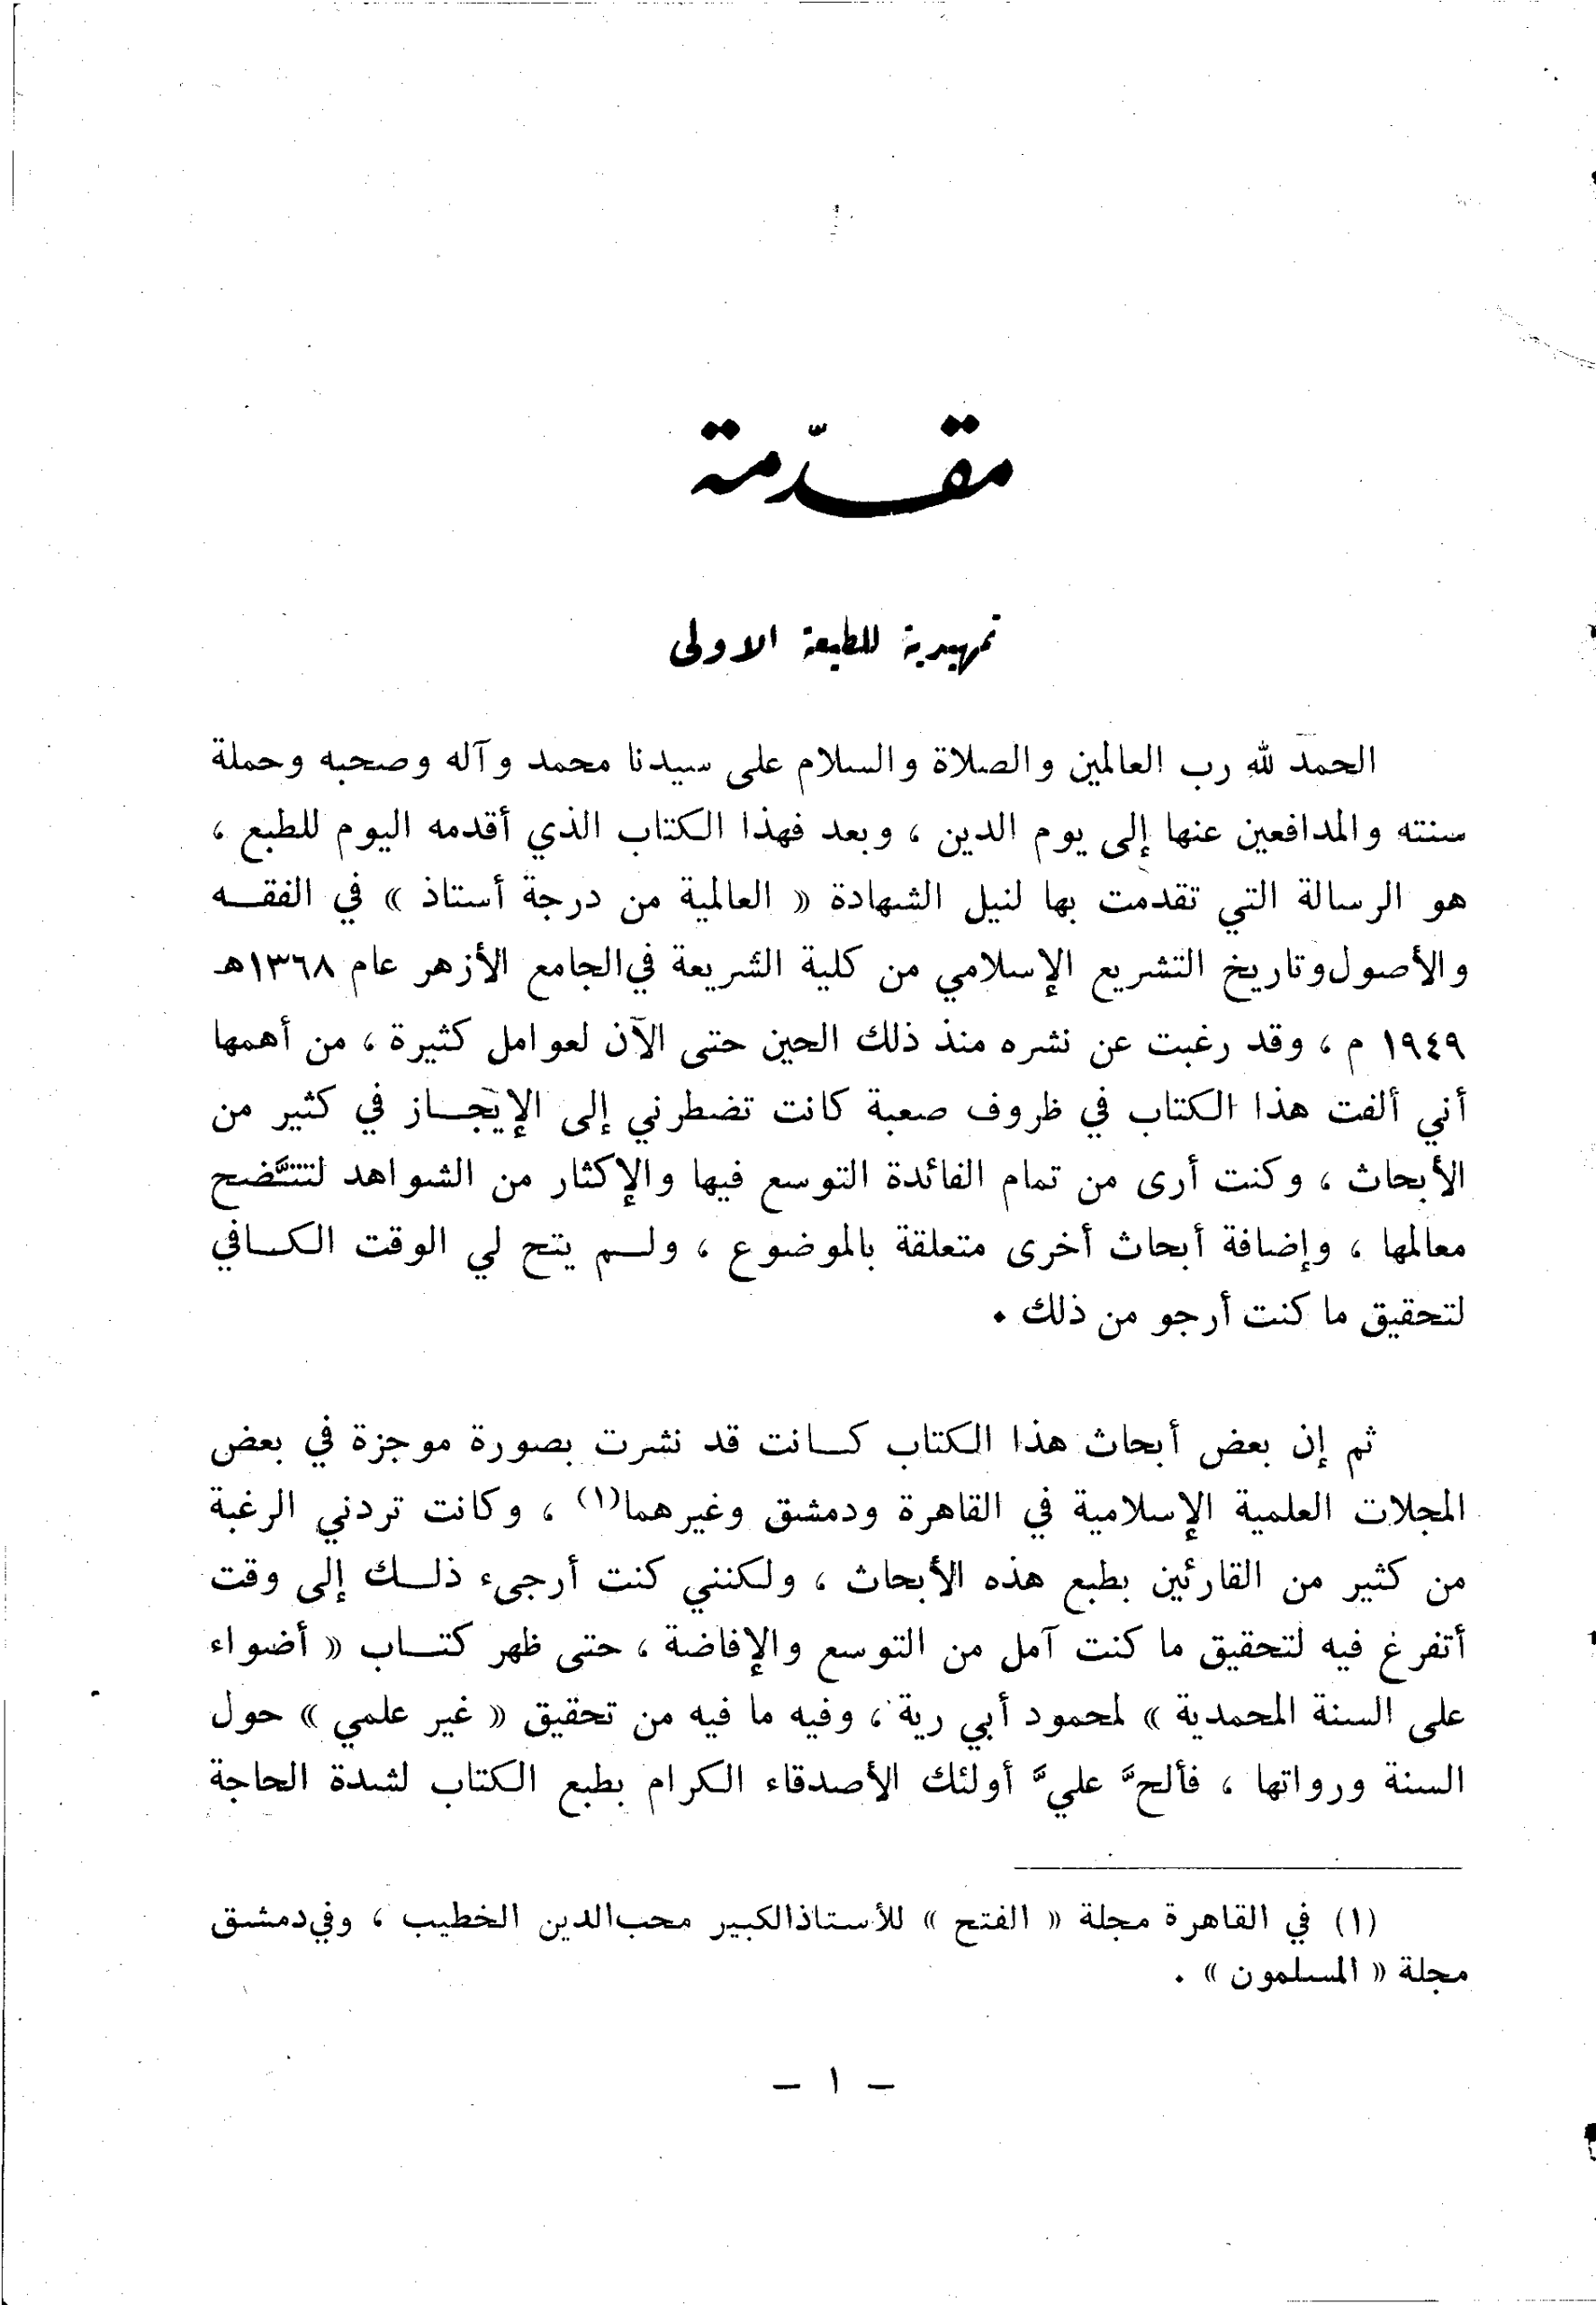 مقـــدّمة
تمهيدية للطبعة الاولى
الحمد لله رب العالمين والصلاة والسلام على سيدنا محمد وآله وصحبه وحملة
سنته والمدافعين عنها إلى يوم الدين ، وبعد فهذا الكتاب الذي أقدمه اليوم للطبع ،
هو الرسالة التي تقدمت بها لنيل الشهادة « العالمية من درجة أستاذ » في الفقـــه
والأصول وتاريخ التشريع الإسلامي من كلية الشريعة في الجامع الأزهر عام ١٣٦٨هـ
١٩٤٩ م ، وقد رغبت عن نشره منذ ذلك الحين حتى الآن لعوامل كثيرة ، من أهمها
أني ألفت هذا الكتاب في ظروف صعبة كانت تضطرني إلى الإيجـــاز في كثير من
الأبحاث ، وكنت أرى من تمام الفائدة التوسع فيها والإكثار من الشواهد لتتَّضح
معالمها ، وإضافة أبحاث أخرى متعلقة بالموضوع ، ولـــم يتح لي الوقت الكـــافي
لتحقيق ما كنت أرجو من ذلك .
ثم إن بعض أبحاث هذا الكتاب كـــانت قد نشرت بصورة موجزة في بعض
المجلات العلمية الإسلامية في القاهرة ودمشق وغيرهما(١) ، وكانت تردني الرغبة
من كثير من القارئين بطبع هذه الأبحاث ، ولكنني كنت أرجىء ذلـــك إلى وقت
أتفرغ فيه لتحقيق ما كنت آمل من التوسع والإفاضة ، حتى ظهر كتـــاب « أضواء
على السنة المحمدية » لمحمود أبي رية ، وفيه ما فيه من تحقيق « غير علمي » حول
السنة ورواتها ، فألحَّ عليَّ أولئك الأصدقاء الكرام بطبع الكتاب لشدة الحاجة
(١) في القاهرة مجلة « الفتح » للأستاذ الكبير محب الدين الخطيب ، وفي دمشق
مجلة « المسلمون » .
— ١ —